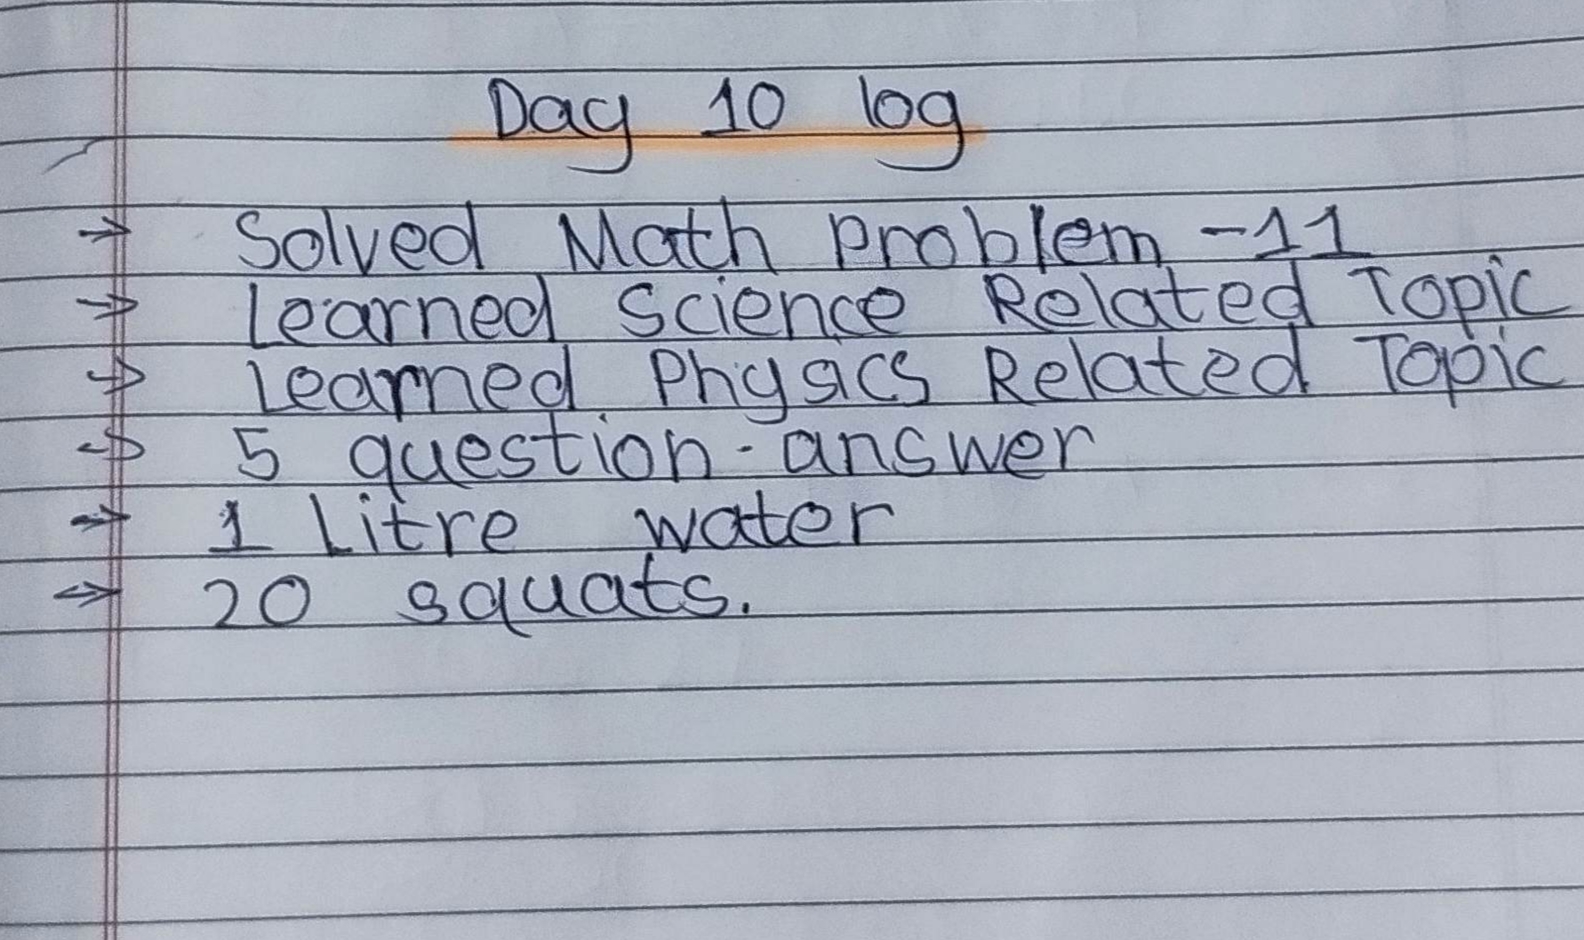 Day 10 log
→ Solved Math Problem - 11
→ Learned Science Related Topic
→ Learned Physics Related Topic
→ 5 question - answer
→ 1 Litre water
→ 20 squats.